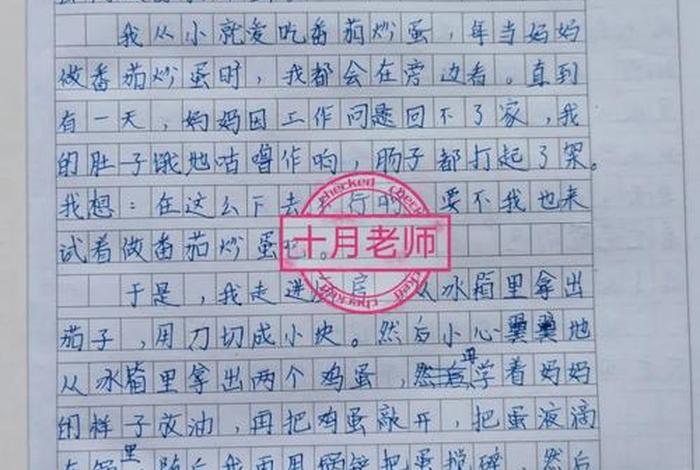 我从小就爱吃番茄炒蛋，每当妈妈
做番茄炒蛋时，我都会在旁边看。直到
有一天，妈妈因工作问题回不了家，我
的肚子饿地咕噜作响，肠子都打起了架。
我想：在这么下去 行的 要不我也来
试着做番茄炒蛋 。
checked
checked
十月老师
checked
checked
于是，我走进 从冰箱里拿出
茄子，用刀切成小块。然后小心翼翼地
从冰箱里拿出两个鸡蛋，再学着妈妈
的样子放油，再把鸡蛋敲开，把蛋液滴
里 随后我再用锅铲把蛋搅碎，然后